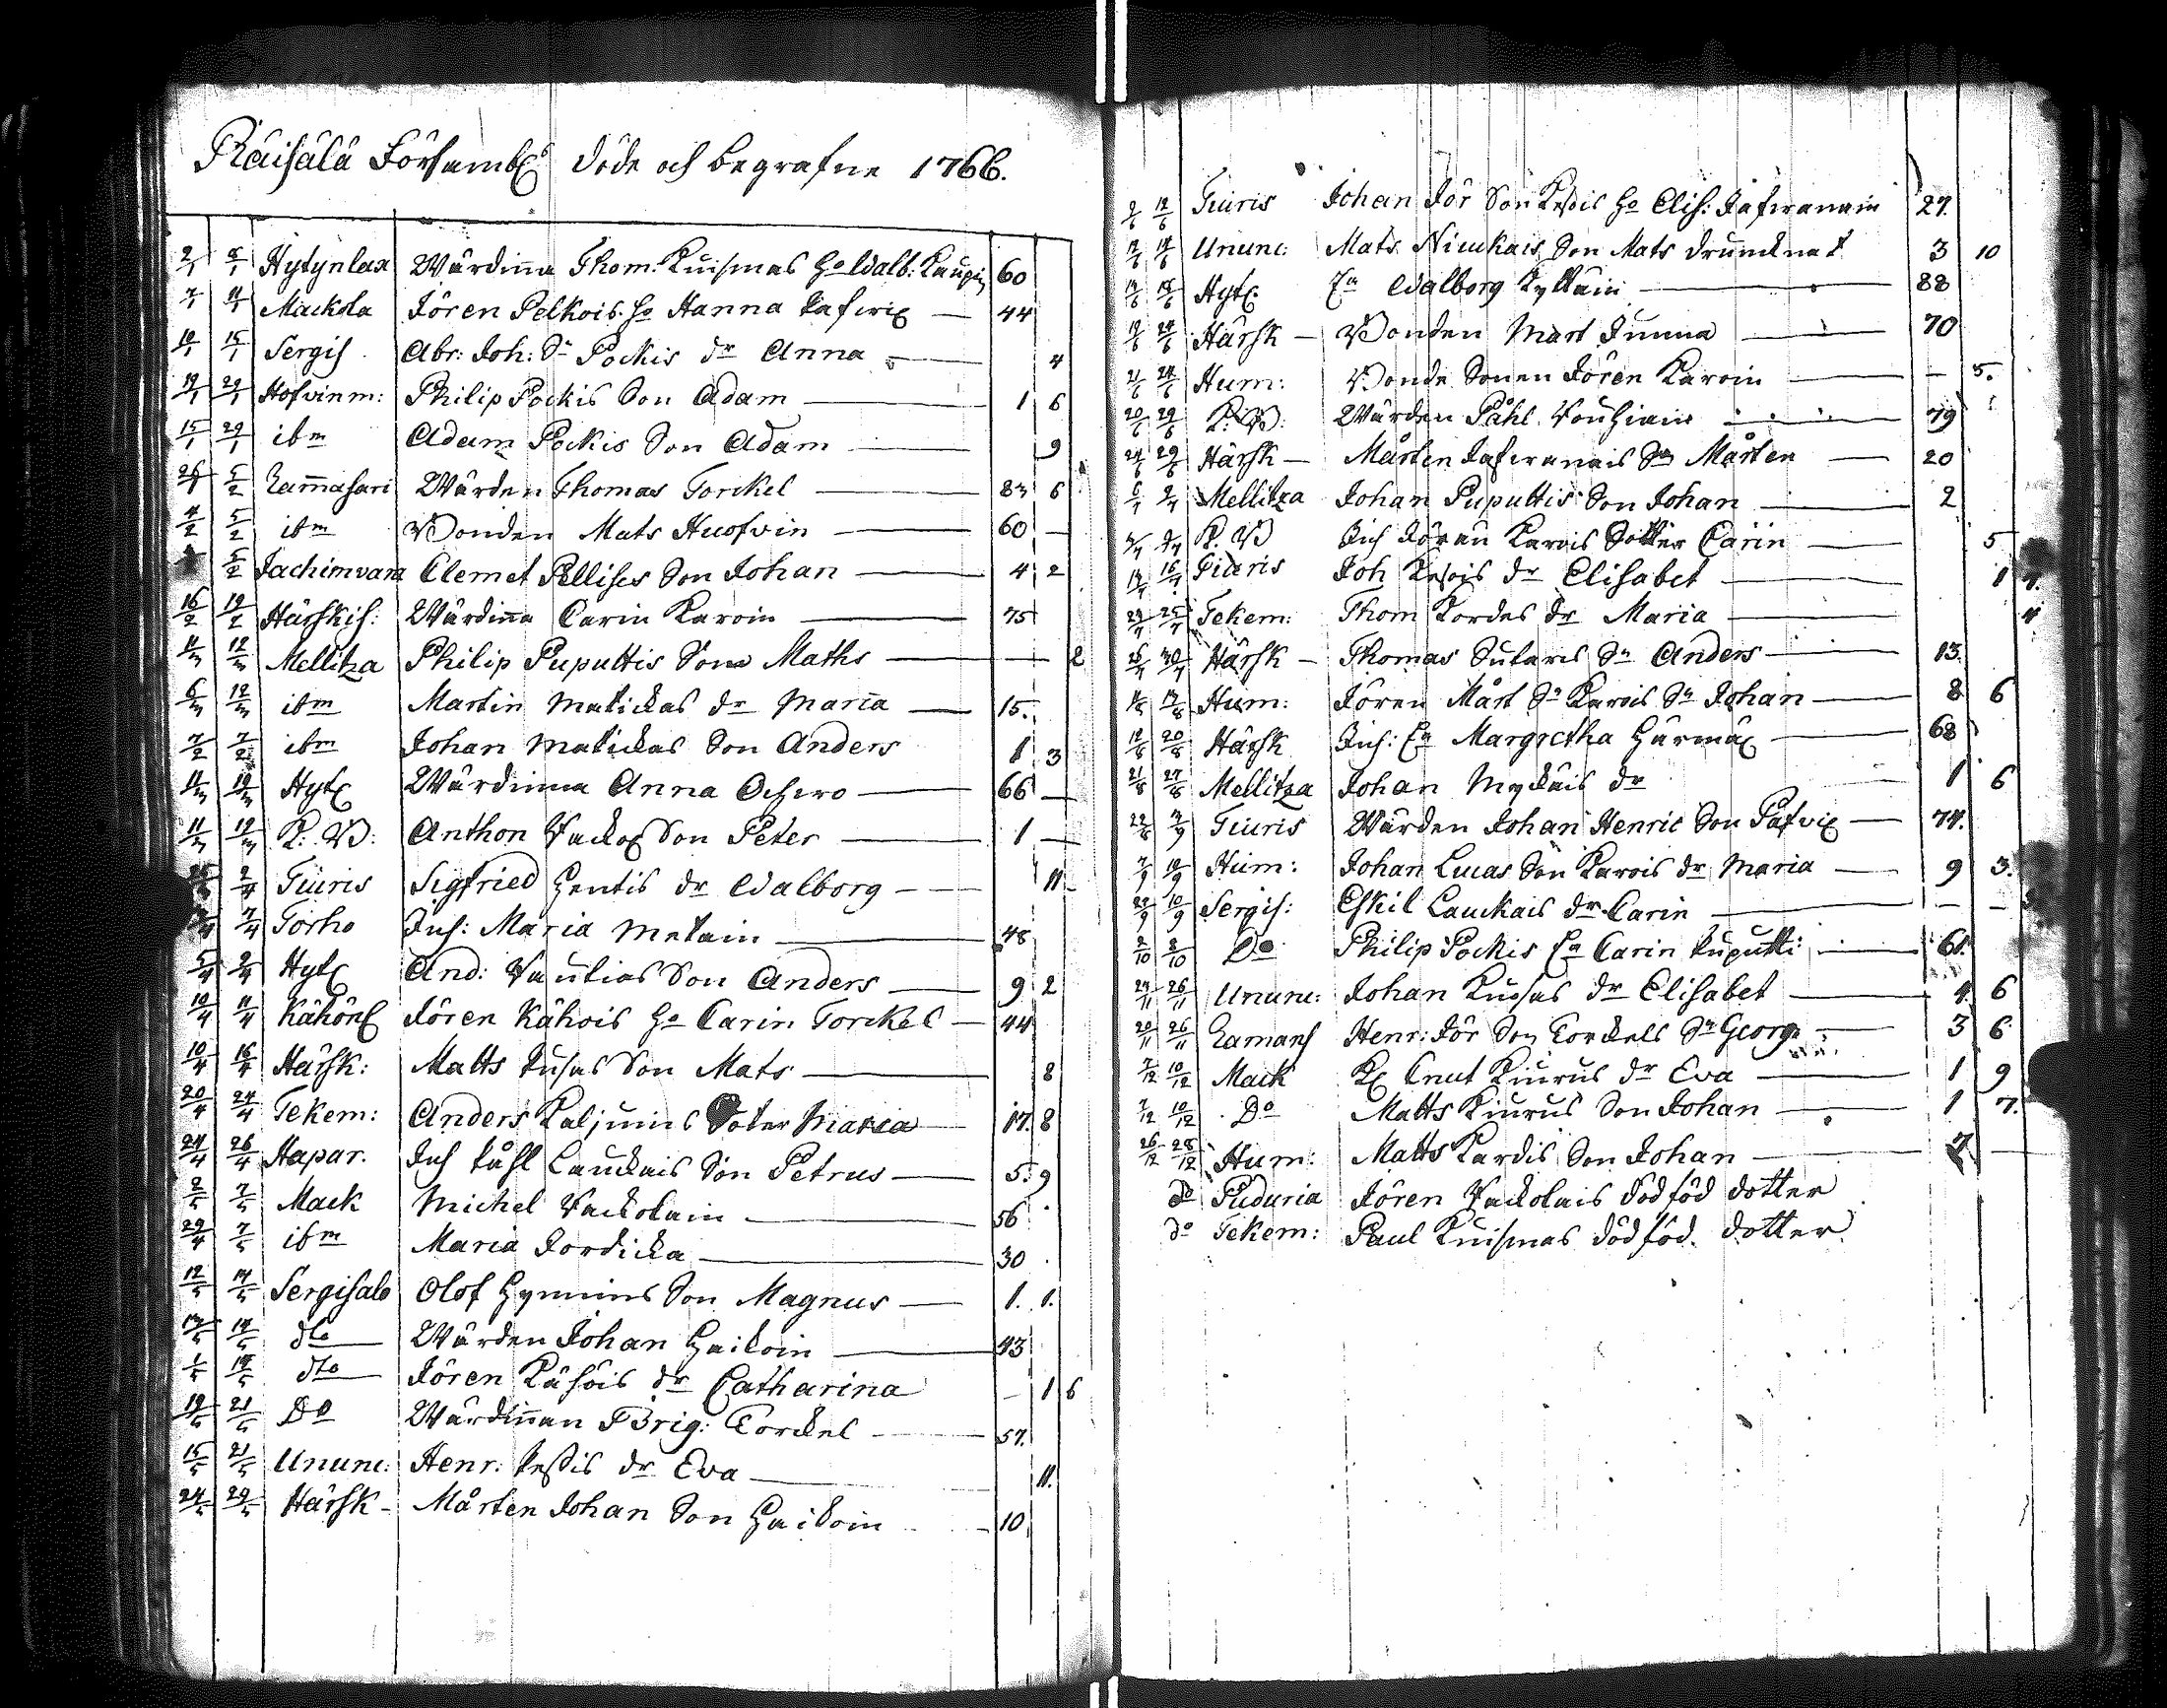 Räisälä Församb:s döde och begrafne 1766.
2/1 5/1 Hytynlax Wärdinna Thom: Kuismas ho Walb: Kaupi 60
7/1 11/1 Mackola Jören Pelkois ho Hanna 44
10/1 15/1 Sergis Abr: Joh: Sn Pockis dr Anna 4
19/1 29/1 Hofvinm: Philip Pockis Son Adam 1 6
15/1 29/1 ibm Adam Pockis Son Adam 9
5/2 Lammasari Wärden Thomas Torckel 83 6
4/2 5/2 ibm Bonden Mats Huofvin 60 —
5/2 Jachimvara Clemet Pellises Son Johan 4 2
16/2 19/2 Härskis: Wärdinna Carin Karoin 75
11/3 12/3 Mellitza Philip Puputtis Son Maths — 2
6/3 12/3 ibm Martin Matickas dr Maria 15.
7/2 7/2 ibm Johan Matickas Son Anders 1 3
11/3 19/3 Hyt Wärdinna Anna Ochwo 66 —
11/3 19/3 K. B: Anthon Vacko Son Peter 1 —
2/4 Tiuris Sigfried Hentis dr Walborg 11
7/4 Torho Inh: Maria Matain 48
5/4 9/4 Hyt And: Vautias Son Anders 9 2
10/4 11/4 Kähön Jören Kähois ho Carin Torckel 44
10/4 16/4 Härsk: Matts Kusas Son Mats 8
20/4 24/4 Tekem: Anders Kaljunis Doter Maria 17. 8
24/4 26/4 Hapar. Inh Påhl Lauckais Son Petrus 5. 9
2/5 7/5 Mack Michel Vackolain 56
29/4 7/5 ibm Maria Jordicka 30
12/5 14/5 Sergisalo Olof Hynnins Son Magnus 1. 1.
14/5 dto Wärden Johan Haikoin 43
1/5 19/5 dto Jören Kähöis dr Catharina — 1 6
19/5 21/5 Do Wärdinnan Brig: Torckel 57.
15/5 21/5 Ununi: Henr: Pessis dr Eva 11.
24/5 29/5 Härsk- Mårten Johan Son Haikoin 10
12/6 Tiuris Johan Jör Son Kesois ho Elis: Jafwanain 27.
Ununi: Mats Niuckais Son Mats drunknat 3 10
Hyt: Ea Walborg Kyttäin 88
19/6 24/6 Härsk — Bonden Mart Junna 70
21/6 24/6 Hum: Bonde Sonen Jören Karoin — 5.
20/6 29/6 K. B: Wärden Påhl Vouhiain 79
24/6 29/6 Härsk — Mårten Jafwanais Sn Mårten 20
6/7 9/7 Mellitza Johan Puputtis Son Johan 2
K. B Inh Jöran Karois Dotter Carin 5
16/7 Tiuris Joh Kesois dr Elisabet 1
25/7 Tekem: Thom Kordes dr Maria 4
26/7 30/7 Härsk — Thomas Sutaris Sn Anders 13.
Hum: Jören Mårt Sn Karois Sn Johan 8 6
18/8 20/8 Härsk Inh: Ea Margretha Härmä 68
21/8 27/8 Mellitza Johan Myckais dr 1 6
Tiuris Wärden Johan Henric Son Pafvi 74.
7/9 10/9 Hum: Johan Lucas Son Karois dr Maria 9 3.
10/9 Sergis: Eskil Lauckais dr Carin — —
2/10 8/10 Do Philip Pockis Ea Carin Puputti 61.
24/11 26/11 Ununi: Johan Kusas dr Elisabet 4 6
20/11 26/11 Lamans Henr: Jör Son Torckels Sn Georg 3 6
7/12 10/12 Mack Knut Kiurus dr Eva 1 9
7/12 10/12 Do Matts Kiurus Son Johan 1 7.
26/12 28/12 Hum: Matts Kardis Son Johan
do Puduria Jören Vackolais dödföd dotter
do Tekem: Paul Kuismas dödföd dotter